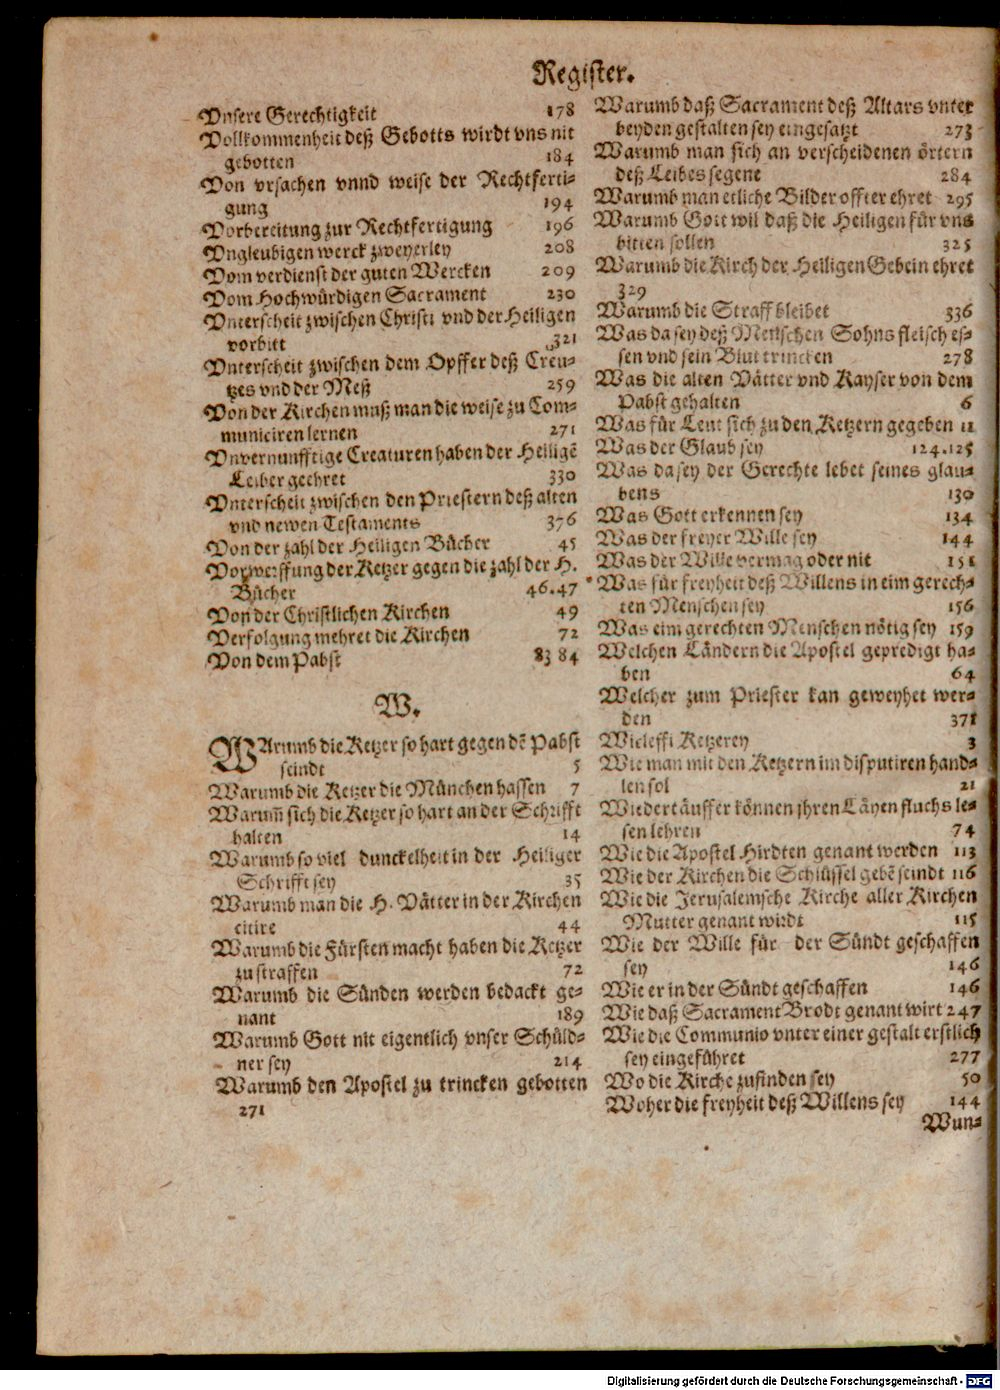 Register.
Vnsere Gerechtigkeit 178
Vollkommenheit deß Gebotts wirdt vns nit
gebotten 184
Von vrsachen vnnd weise der Rechtferti-
gung 194
Vorbereitung zur Rechtfertigung 196
Vngleubigen werck zweyerley 208
Vom verdienst der guten Wercken 209
Vom Hochwürdigen Sacrament 230
Vnterscheit zwischen Christi vnd der Heiligen
vorbitt 321
Vnterscheit zwischen dem Opffer deß Creu-
tzes vnd der Meß 259
Von der Kirchen muß man die weise zu Com-
municiren lernen 271
Vnvernunfftige Creaturen haben der Heiligẽ
Leiber geehret 330
Vnterscheit zwischen den Priestern deß alten
vnd newen Testaments 376
Von der zahl der Heiligen Bücher 45
Vorwerffung der Ketzer gegen die zahl der H.
Bücher 46.47
Von der Christlichen Kirchen 49
Verfolgung mehret die Kirchen 72
Von dem Pabst 83 84
W.
WArumb die Ketzer so hart gegen dẽ Pabst
seindt 5
Warumb die Ketzer die München hassen 7
Warum̃ sich die Ketzer so hart an der Schrifft
halten 14
Warumb so viel dunckelheit in der Heiliger
Schrifft sey 35
Warumb man die H. Vätter in der Kirchen
citire 44
Warumb die Fürsten macht haben die Ketzer
zu straffen 72
Warumb die Sünden werden bedackt ge-
nant 189
Warumb Gott nit eigentlich vnser Schüld-
ner sey 214
Warumb den Apostel zu trincken gebotten
271
Warumb daß Sacrament deß Altars vnter
beyden gestalten sey eingesatzt 273
Warumb man sich an verscheidenen örtern
deß Leibes segene 284
Warumb man etliche Bilder offter ehret 295
Warumb Gott wil daß die Heiligen für vns
bitten sollen 325
Warumb die Kirch der Heiligen Gebein ehret
329
Warumb die Straff bleibet 336
Was da sey deß Menschen Sohns fleisch es-
sen vnd sein Blut trincken 278
Was die alten Vätter vnd Kayser von dem
Pabst gehalten 6
Was für Leut sich zu den Ketzern gegeben 11
Was der Glaub sey 124.125
Was da sey der Gerechte lebet seines glau-
bens 130
Was Gott erkennen sey 134
Was der freyer Wille sey 144
Was der Wille vermag oder nit 151
Was für freyheit deß Willens in eim gerech-
ten Menschen sey 156
Was eim gerechten Menschen nötig sey 159
Welchen Ländern die Apostel gepredigt ha-
ben 64
Welcher zum Priester kan geweyhet wer-
den 371
Wicleffi Ketzerey 3
Wie man mit den Ketzern im disputiren hand-
len sol 21
Wiedertäuffer können jhren Läyen fluchs le-
sen lehren 74
Wie die Apostel Hirdten genant werden 113
Wie der Kirchen die Schlüssel gebẽ seindt 116
Wie die Jerusalemsche Kirche aller Kirchen
Mutter genant wirdt 115
Wie der Wille für der Sündt geschaffen
sey 146
Wie er in der Sündt geschaffen 146
Wie daß Sacrament Brodt genant wirt 247
Wie die Communio vnter einer gestalt erstlich
sey eingeführet 277
Wo die Kirche zufinden sey 50
Woher die freyheit deß Willens sey 144
Wun-
Digitalisierung gefördert durch die Deutsche Forschungsgemeinschaft - DFG